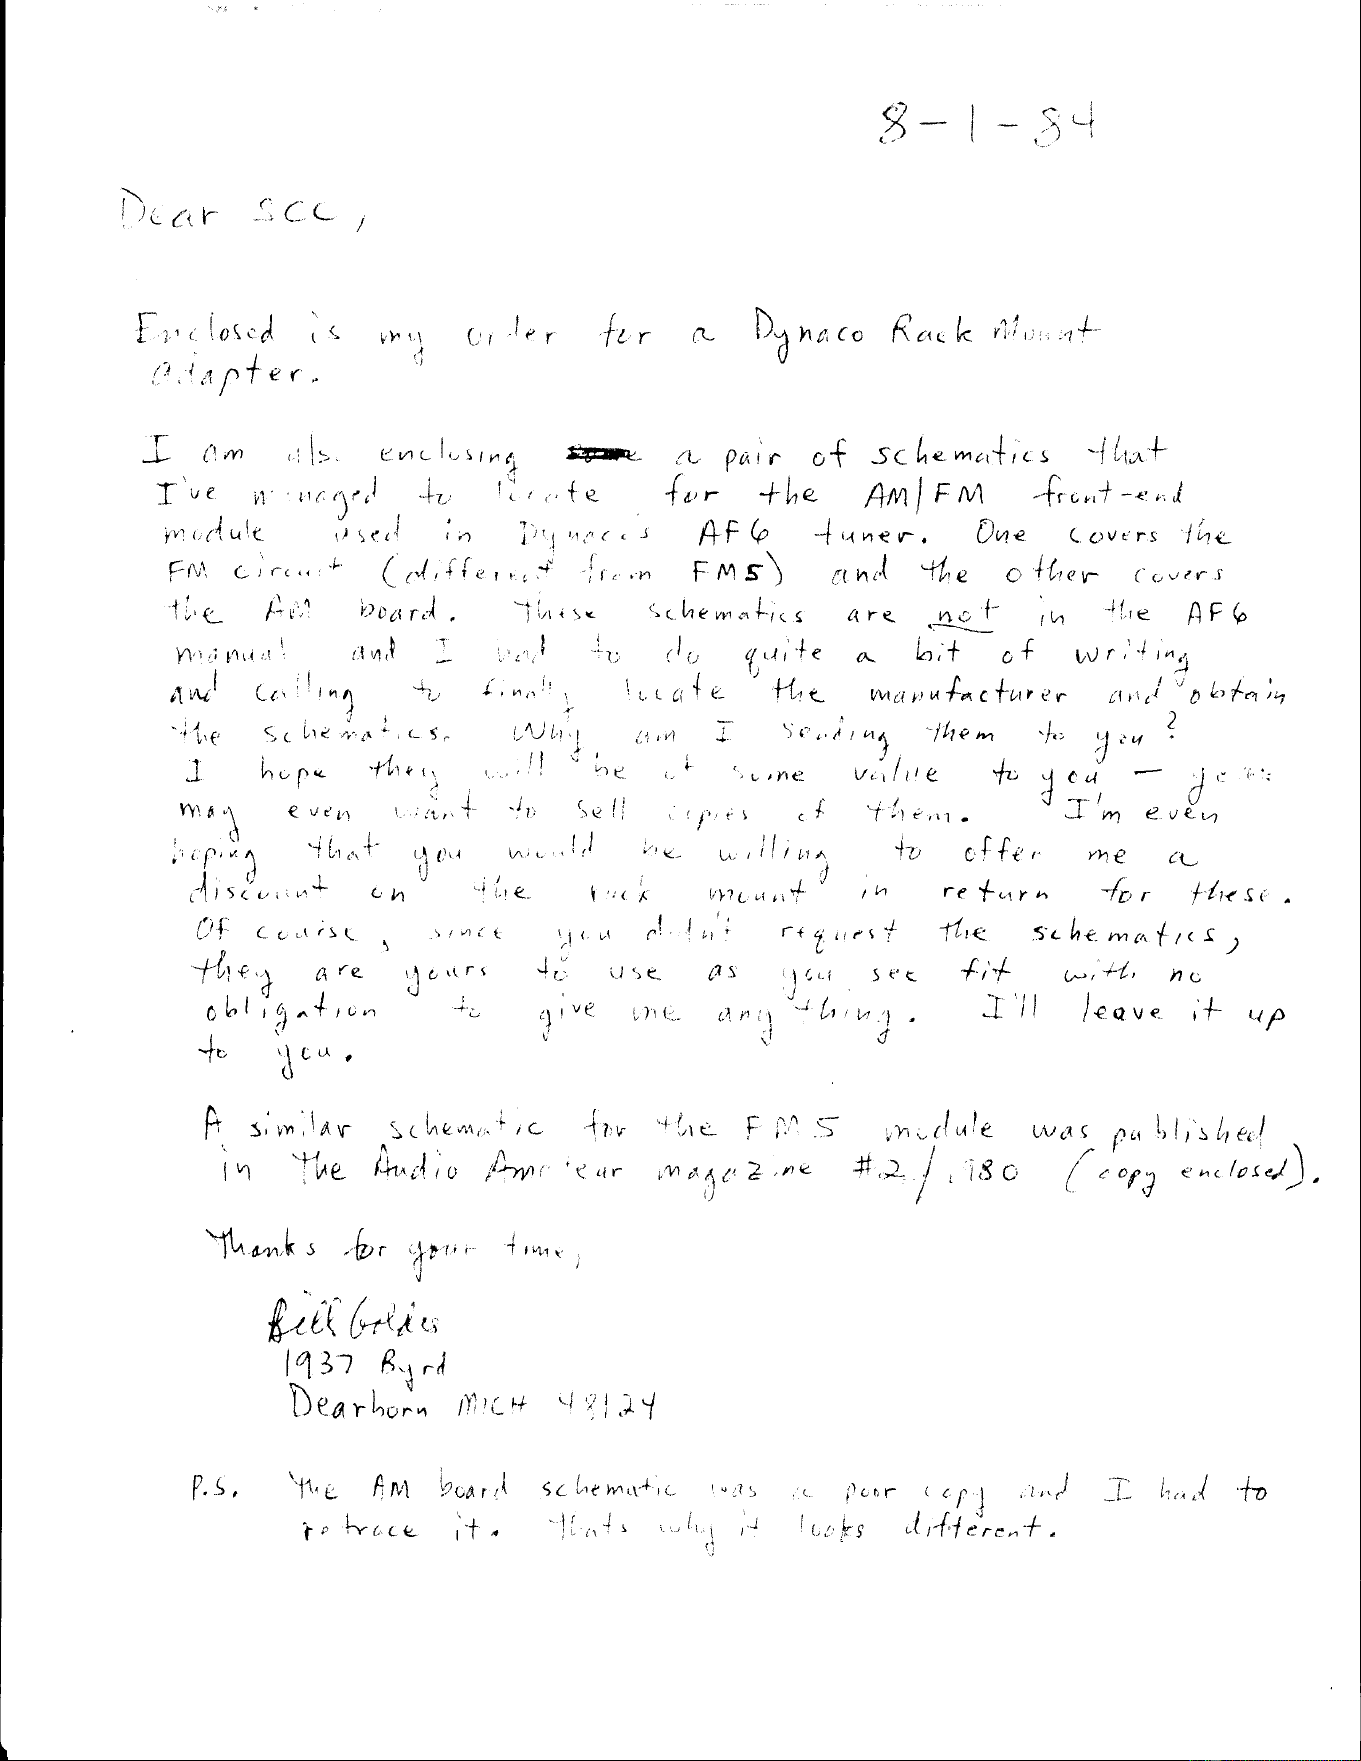 8-1-84
Dear SCC,
Enclosed is my order for a Dynaco Rack Mount
adapter.
I am also enclosing a pair of schematics that
I've managed to locate for the AM/FM front-end
module used in Dynaco's AF6 tuner. One covers the
FM circuit (different from FM5) and the other covers
the AM board. These schematics are not in the AF6
manual and I had to do quite a bit of writing
and calling to finally locate the manufacturer and obtain
the schematics. Why am I sending them to you?
I hope they will be of some value to you - you
may even want to sell copies of them. I'm even
hoping that you would be willing to offer me a
discount on the rack mount in return for these.
Of course, since you didn't request the schematics,
they are yours to use as you see fit with no
obligation to give me anything. I'll leave it up
to you.
A similar schematic for the FM5 module was published
in the Audio Amateur magazine #2/1980 (copy enclosed).
Thanks for your time,
Bill
1937 Byrd
Dearborn MICH 48124
P.S. The AM board schematic was a poor copy and I had to
retrace it. Thats why it looks different.